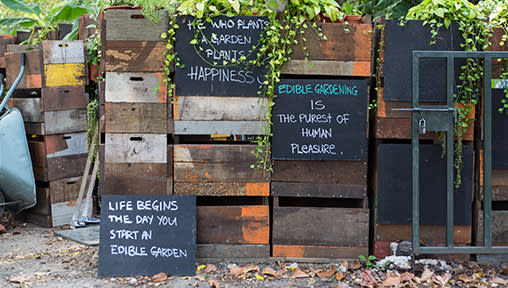 HE WHO PLANTS
A GARDEN
PLANTS
HAPPINESS
EDIBLE GARDENING
IS
THE PUREST OF
HUMAN
PLEASURE.
LIFE BEGINS
THE DAY YOU
START AN
EDIBLE GARDEN